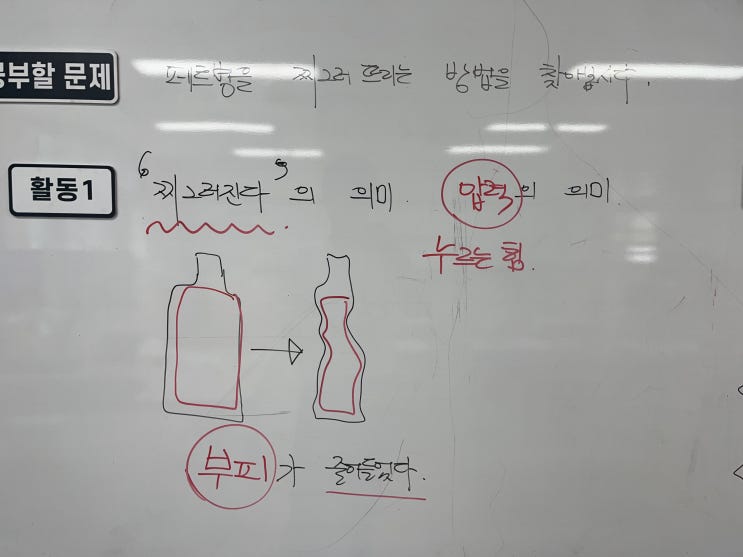 공부할 문제 페트병을 찌그러 뜨리는 방법을 찾아봅시다.
활동1 '찌그러진다'의 의미. 압력의 의미.
누르는 힘.
부피가 줄어들었다.